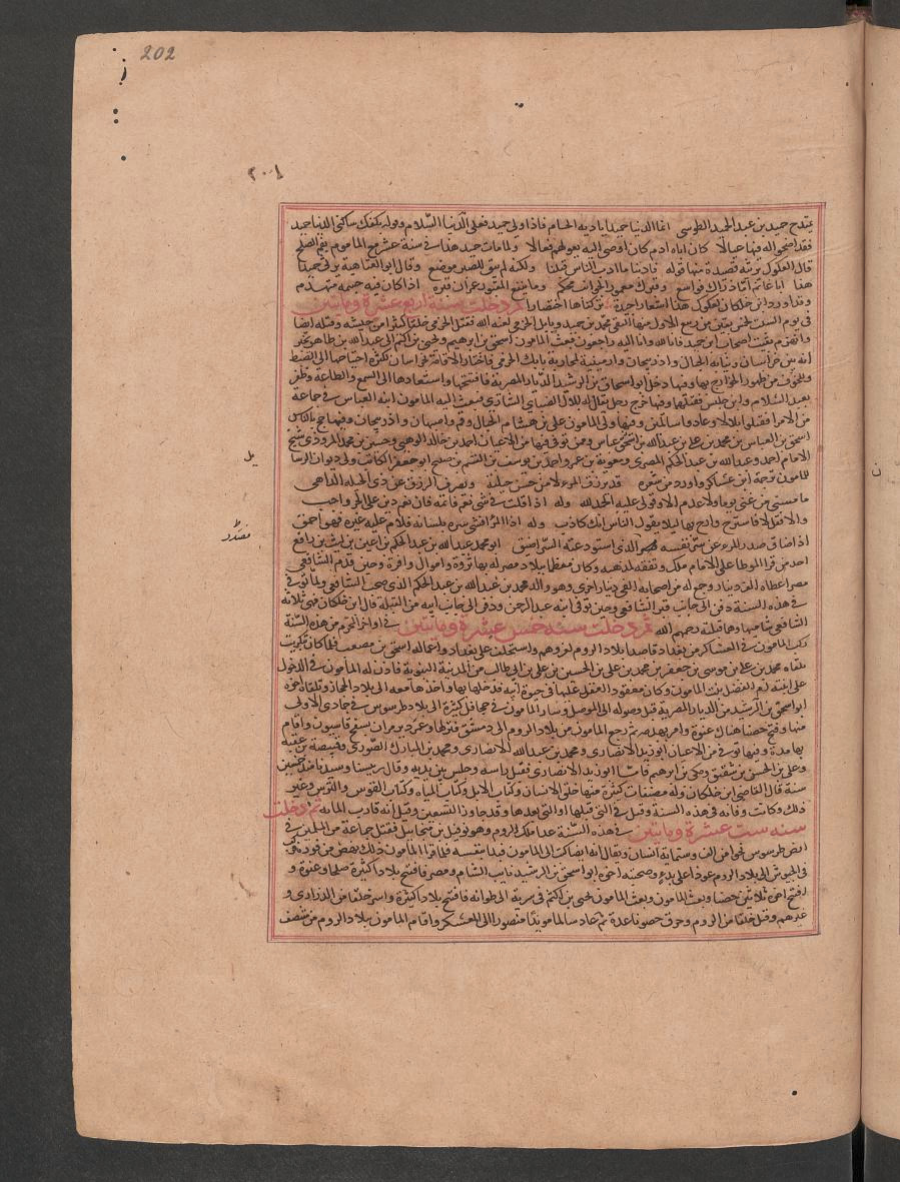 202
٢٠١
يمتدح حميد بن عبد الحميد الطوسي انما الدنيا حميد اياديه الجسام فاذا ولى حميد فعلى الدنيا السلام وقوله تكفل ساكني الدنيا حميد
فقد اضحوا له فيها عيالا كان اباه ادم كان اوصى اليه يعولهم فعالا ولما مات حميد هذا في سنة عشر مع المأموم بفم الصلح
قال العكوك يرثيه قصيدة منها قوله فادبنا ما ادب الناس قبلنا ولكنه لم يبق للصبر موضع وقال ابو العتاهية يرثي حميدا
هذا ابا غانم اما ذراك فواسع وقبرك معمور الجوانب محكم وما ينفع المقبور عمران قبره اذا كان فيه جسمه متهدم
وقد اورد ابن خلكان لعكوك هذا اشعارا جيدة تركناها اختصارا ثم دخلت سنة اربع عشرة ومايتين
في يوم السبت لخمس بقين من ربيع الاول منها التقى محمد بن حميد وبابك الخرمي لعنه الله فقتل الخرمي خلقا كثيرا من جيشه وقتله ايضا
وانهزم بقية اصحاب ابن حميد فانا لله وانا اليه راجعون فبعث المامون اسحق بن ابرهيم ويحيى بن اكثم الى عبد الله بن طاهر يخيرانه
بين خراسان ونيابة الجبال واذربيجان وارمينية لمحاربة بابك الخرمي فاختار الاقامة بخراسان لكثرة احتياجها الى الضبط
وللخوف من ظهور الخوارج بها وفيها دخل ابو اسحاق بن الرشيد الديار المصرية فافتتحها واستعادها الى السمع والطاعة وظفر
بعبد السلام وابن جليس فقتلهما وفيها خرج رجل يقال له بلال الضبابي الشاري فبعث اليه المامون ابنه العباس في جماعة
من الامرا فقتلوا بلالا وعادوا سالمين وفيها ولى المامون علي بن هشام الجبال وقم واصبهان واذربيجان وفيها حج بالناس
اسحق بن العباس بن محمد بن علي بن عبد الله بن عباس وممن توفي فيها من الاعيان احمد بن خالد الوهبي وحسين بن محمد المروذي شيخ
الامام احمد وعبد الله بن عبد الحكم المصري ومعوية بن عمرو احمد بن يوسف بن القسم بن صبيح ابو جعفر الكاتب ولي ديوان الرسا
للمامون ترجمه ابن عساكر واورد من شعره قد يرزق المرء لا من حسن حيلته ويصرف الرزق عن ذي الحيلة الداهي
ما مسني من غنى يوما ولا عدم الا وقولي عليه الحمد لله وله اذا قلت في شي نعم فاتمه فان نعم دين على الحر واجب
والا فقل لا فاسترح وارح بها ليلا يقول الناس انك كاذب وله اذا المرء افشى سره بلسانه فلام عليه غيره فهو احمق
اذا ضاق صدر المرء عن سر نفسه فصدر الذي استودعته السر اضيق ابو محمد عبد الله بن عبد الحكم بن اعين بن ليث بن رافع
احد من قرا الموطا على الامام ملك وتفقه لمذهبه وكان معظما ببلاد مصر له بها ثروة واموال وافرة وحين قدم الشافعي
مصر اعطاه الف دينار وجمع له من اصحابه الفي دينار اخرى وهو والد محمد بن عبد الله بن عبد الحكم الذي صحب الشافعي ولما توفي
في هذه السنة دفن الى جانب قبر الشافعي وحين توفي ابنه عبد الرحمن ودفن الى جانب ابيه من القبلة قال ابن خلكان فهي ثلاثة
الشافعي شاميها وهما قبلته رحمهم الله ثم دخلت سنة خمس عشرة ومايتين في اواخر المحرم من هذه السنة
ركب المامون في العساكر من بغداد قاصدا بلاد الروم لغزوهم واستخلف على بغداد واعمالها اسحق بن مصعب فلما كان بتكريت
تلقاه محمد بن علي بن موسى بن جعفر بن محمد بن علي بن الحسين بن علي بن ابي طالب من المدينة النبوية فاذن له المأمون في الدخول
على ابنته ام الفضل بنت المامون وكان معقود العقد عليها في حيوة ابيه فدخل بها واخذها معه الى بلاد الحجاز وتلقاه اخوه
ابو اسحق بن الرشيد من الديار المصرية قبل وصوله الى الموصل وسار المامون في جحافل كثيرة الى بلاد طرسوس في جمادى الاولى
منها وفتح حصنا هناك عنوة وامر بهدمه ثم رجع المامون من بلاد الروم الى دمشق فنزلها وعمر دير مران بسفح قاسيون واقام
بها مدة وفيها توفي من الاعيان ابو زيد الانصاري ومحمد بن عبد الله الانصاري ومحمد بن المبارك الصوري وقبيصة بن عقبة
وعلي بن الحسن بن شقيق ومكي بن ابرهيم فاما ابو زيد الانصاري
سنة قال القاضي ابن خلكان وله مصنفات كثيرة منها خلق الانسان وكتاب الابل وكتاب المياه وكتاب القوس والترس وغير
ذلك وكانت وفاته في هذه السنة وقيل في التي قبلها او التي بعدها وقد جاوز التسعين وقيل انه قارب المائة ثم دخلت
سنة ست عشرة ومايتين في هذه السنة عدا ملك الروم وهو توفيل بن ميخائيل فقتل جماعة من المسلمين في
ارض طرسوس نحوا من الف وستماية انسان ويقال انه ايضا كتب الى المامون فبدا بنفسه فلما قرا المامون ذلك نهض من فوره
في الجيوش الى بلاد الروم عودا على بدء وصحبته اخوه ابو اسحق بن الرشيد نايب الشام ومصر فافتتح بلادا كثيرة صلحا وعنوة و
افتتح اخوه ثلاثين حصنا وبعث المامون يحيى بن اكثم في سرية الى طوانه فافتتح بلادا كثيرة واسر خلقا من الذراري و
غيرهم وقتل خلقا من الروم وحرق حصونا عدة ثم عاد سالما مويدا منصورا الى العسكر واقام المامون ببلاد الروم من نصف